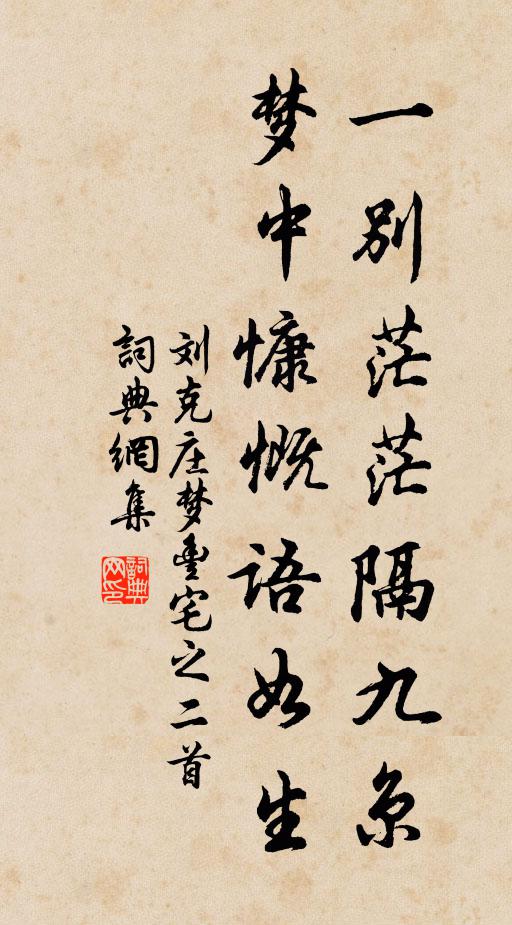 一别茫茫隔九京
梦中慷慨语如生
刘克庄梦丰宅之二首
詞典網集
詞典网印